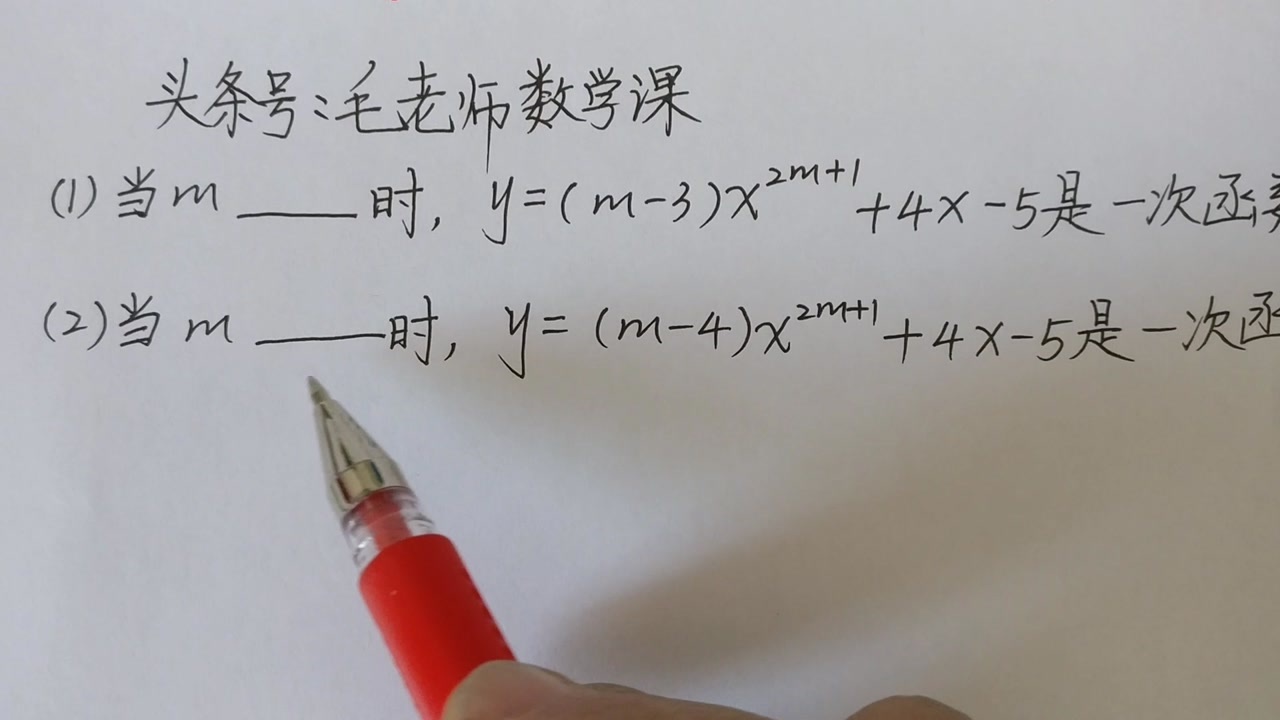 头条号:毛老师数学课
(1)当m ____时, y=(m-3)x^{2m+1}+4x-5是一次函
(2)当 m ____时, y=(m-4)x^{2m+1}+4x-5是一次函